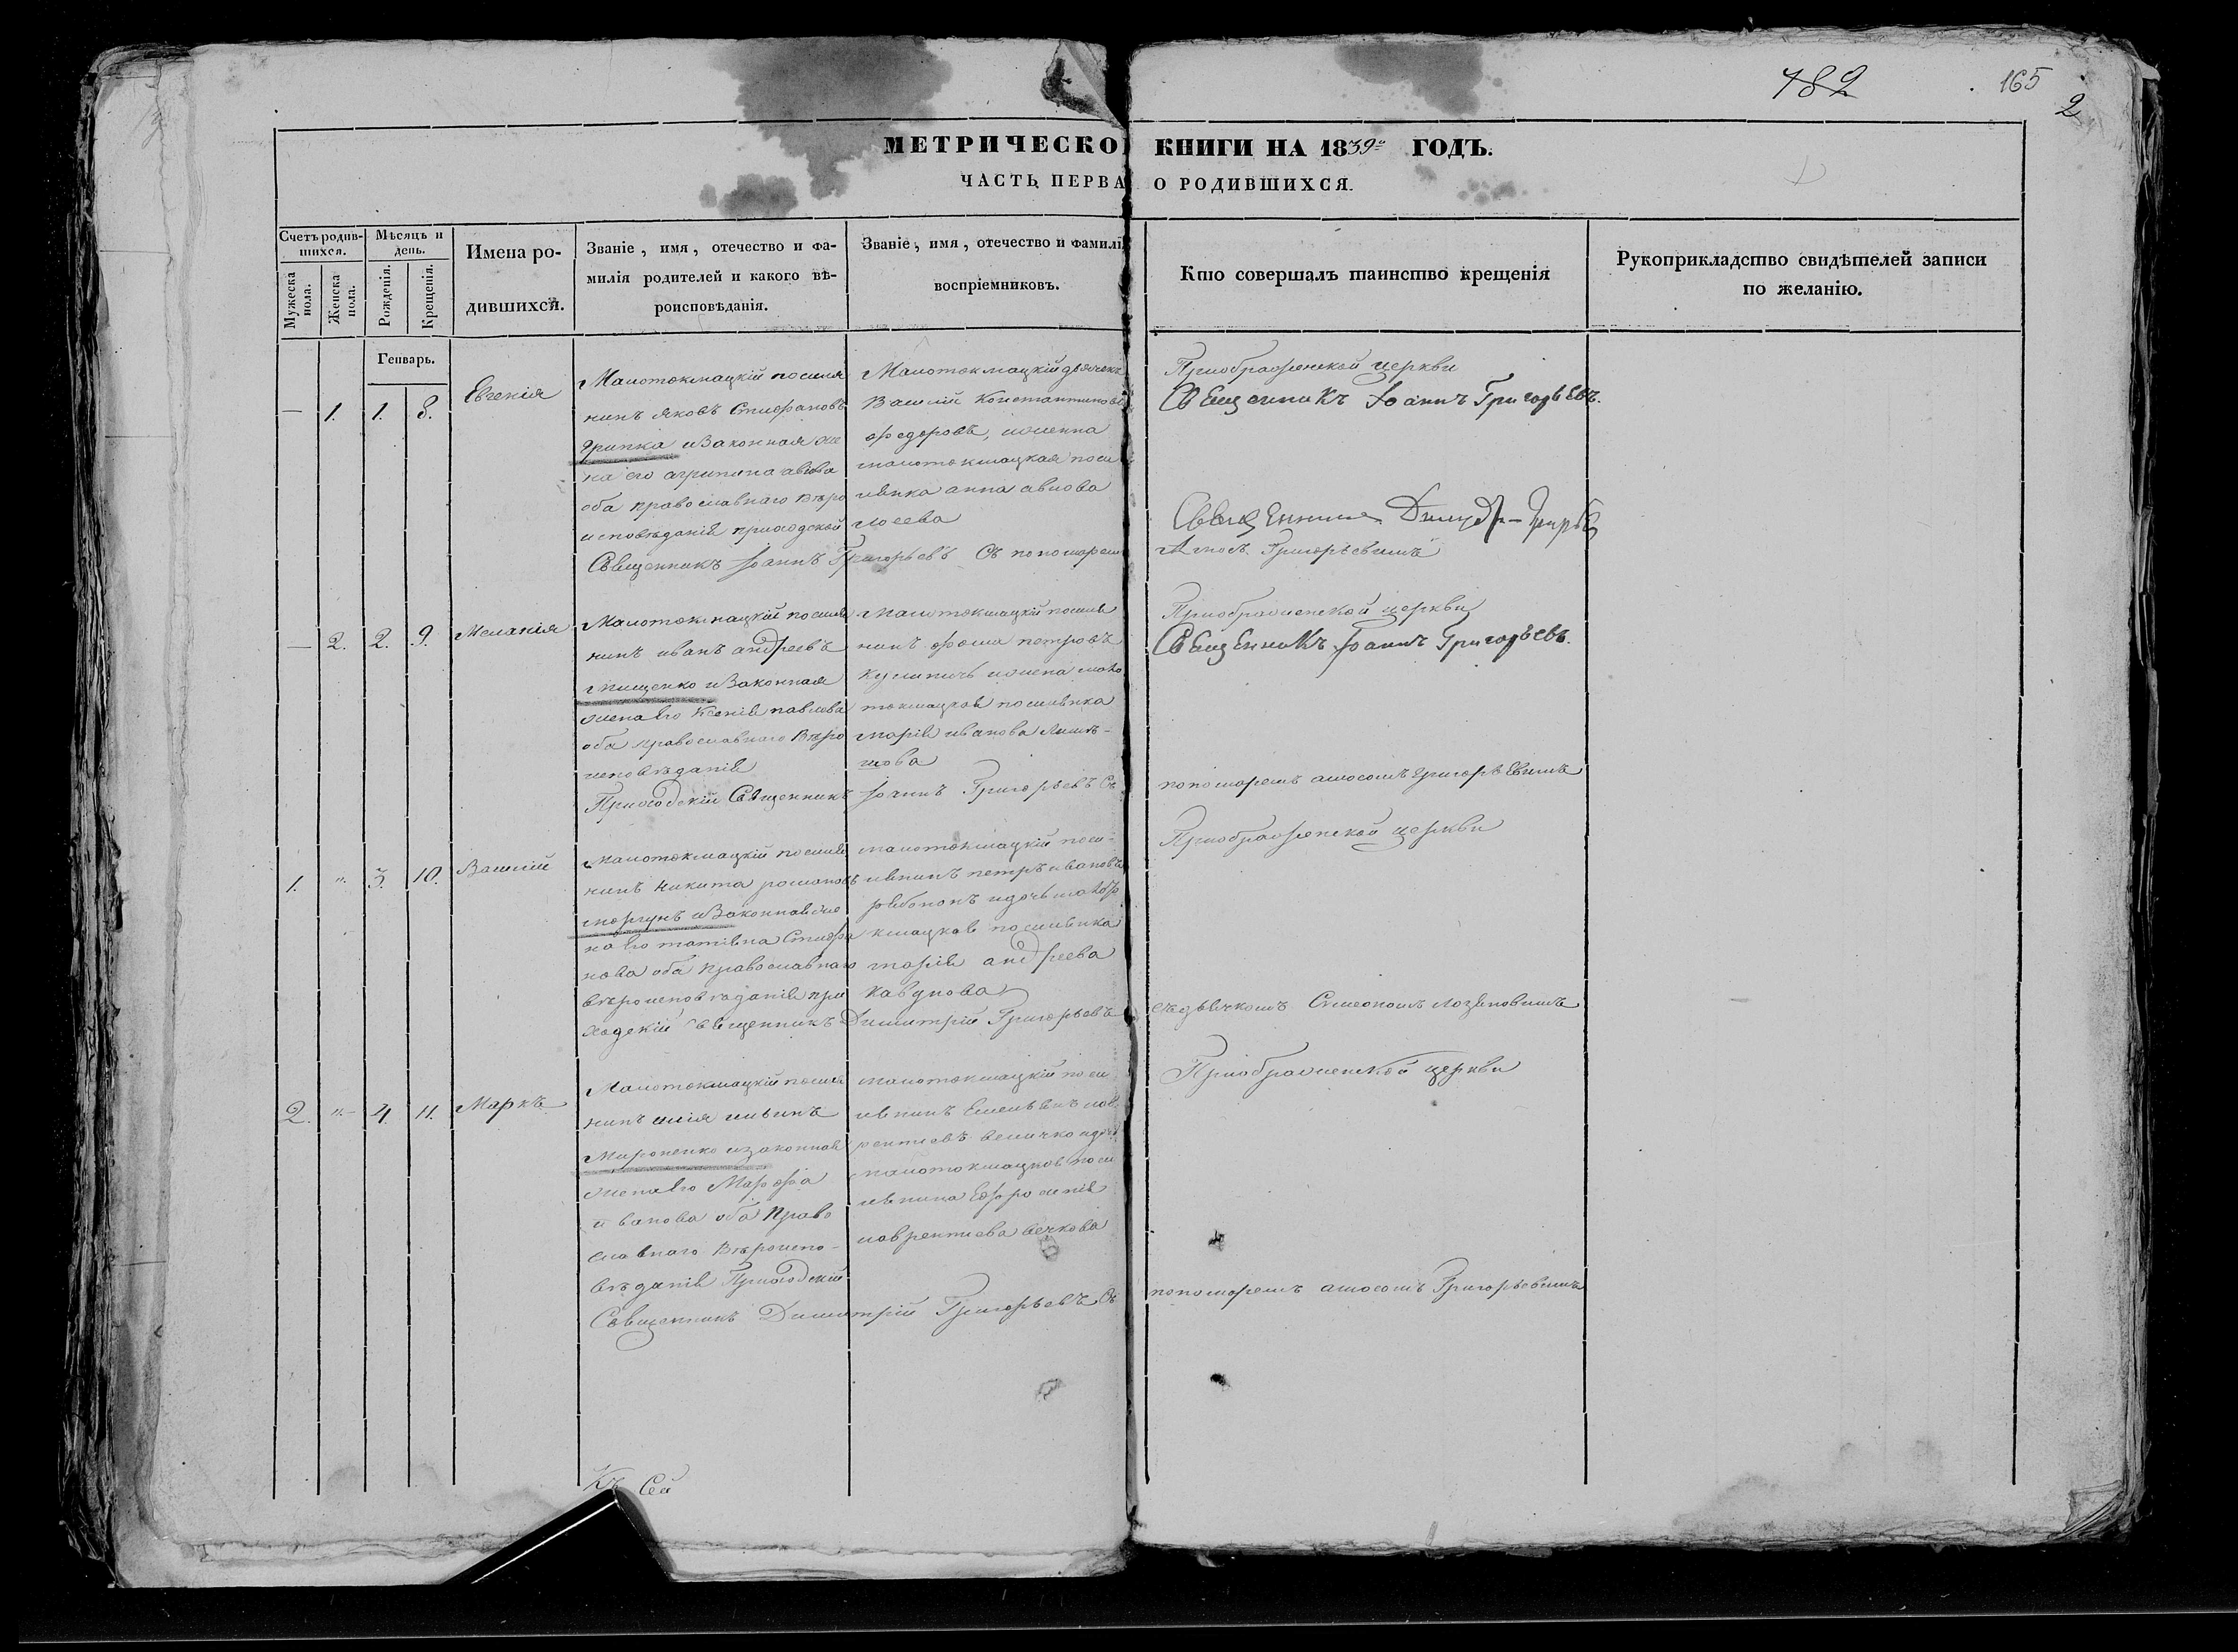 182
165
2
МЕТРИЧЕСКО КНИГИ НА 1839го ГОДЪ.
ЧАСТЬ ПЕРВА О РОДИВШИХСЯ.
Счетъ родив-
шихся.
Мужеска пола.
Женска пола.
Мѣсяцъ и
день.
Рожденія.
Крещенія.
Имена ро-
дившихся.
Званіе, имя, отечество и фа-
милія родителей и какого вѣ-
роисповѣданія.
Званіе, имя, отечество и фамилі
воспріемниковъ.
Кто совершалъ таинство крещенія
Рукоприкладство свидѣтелей записи
по желанію.
Генварь.
— 1. 1. 8.
Евгенія
Малотокмацкій поселя
нинъ Яковъ Стефановъ
и законная же
на его агрипина
оба православнаго вѣро
исповѣданія приходской
Священникъ Іоаннъ Григорьевъ Съ пономарем
Малотокмацкій дьячекъ
Василій Константиновъ
федоровъ, иженна
малотокмацкая посе
лянка анна
Приображенской церкви
СвЯщенникъ Іоаннъ Григорьевъ.
Амос. Григорьевимъ
— 2. 2. 9.
Меланія
Малотокмацкій поселя
нинъ иванъ андреевъ
мищенко и законная
жена его Ксенія павлова
оба православнаго вѣро
исповѣданія
Приходскій Священникъ Іоаннъ Григорьевъ Съ
малотокмацкій поселя
нинъ фома петровъ
токмацкая поселянка
марія иванова
Приображенской церкви
СвЯщЕнникъ Іоаннъ Григорьевъ.
пономаремъ амосомъ ГригорьЕвимъ
1. " 3. 10.
Василій
Малотокмацкій поселя
нинъ никита романовъ
моргунъ и законная же
на его татіяна Стефа
нова оба православнаго
вѣроисповѣданія при
ходскій священникъ Димитрій Григорьевъ
малотокмацкій посе-
лянинъ петръ ивановъ
кмацкая поселянка
марія андреева
кавунова
Приображенской церкви
съ дьячкомъ Симеономъ Лозановимъ
2. " 4. 11.
Маркъ
Малотокмацкій поселя
нинъ илія ильинъ
Мироненко и законная
жена его Марфа
иванова оба право
славнаго вѣроиспо-
вѣданія Приходскій
Священникъ Димитрій Григорьевъ Съ
малотокмацкій посе
лянинъ Емельянъ лав
рентіевъ величко
малотокмацкая посе
лянка Ефросинія
лаврентиева вечкова
Приображенской церкви
пономаремъ амосомъ Григорьевимъ
Къ Сей